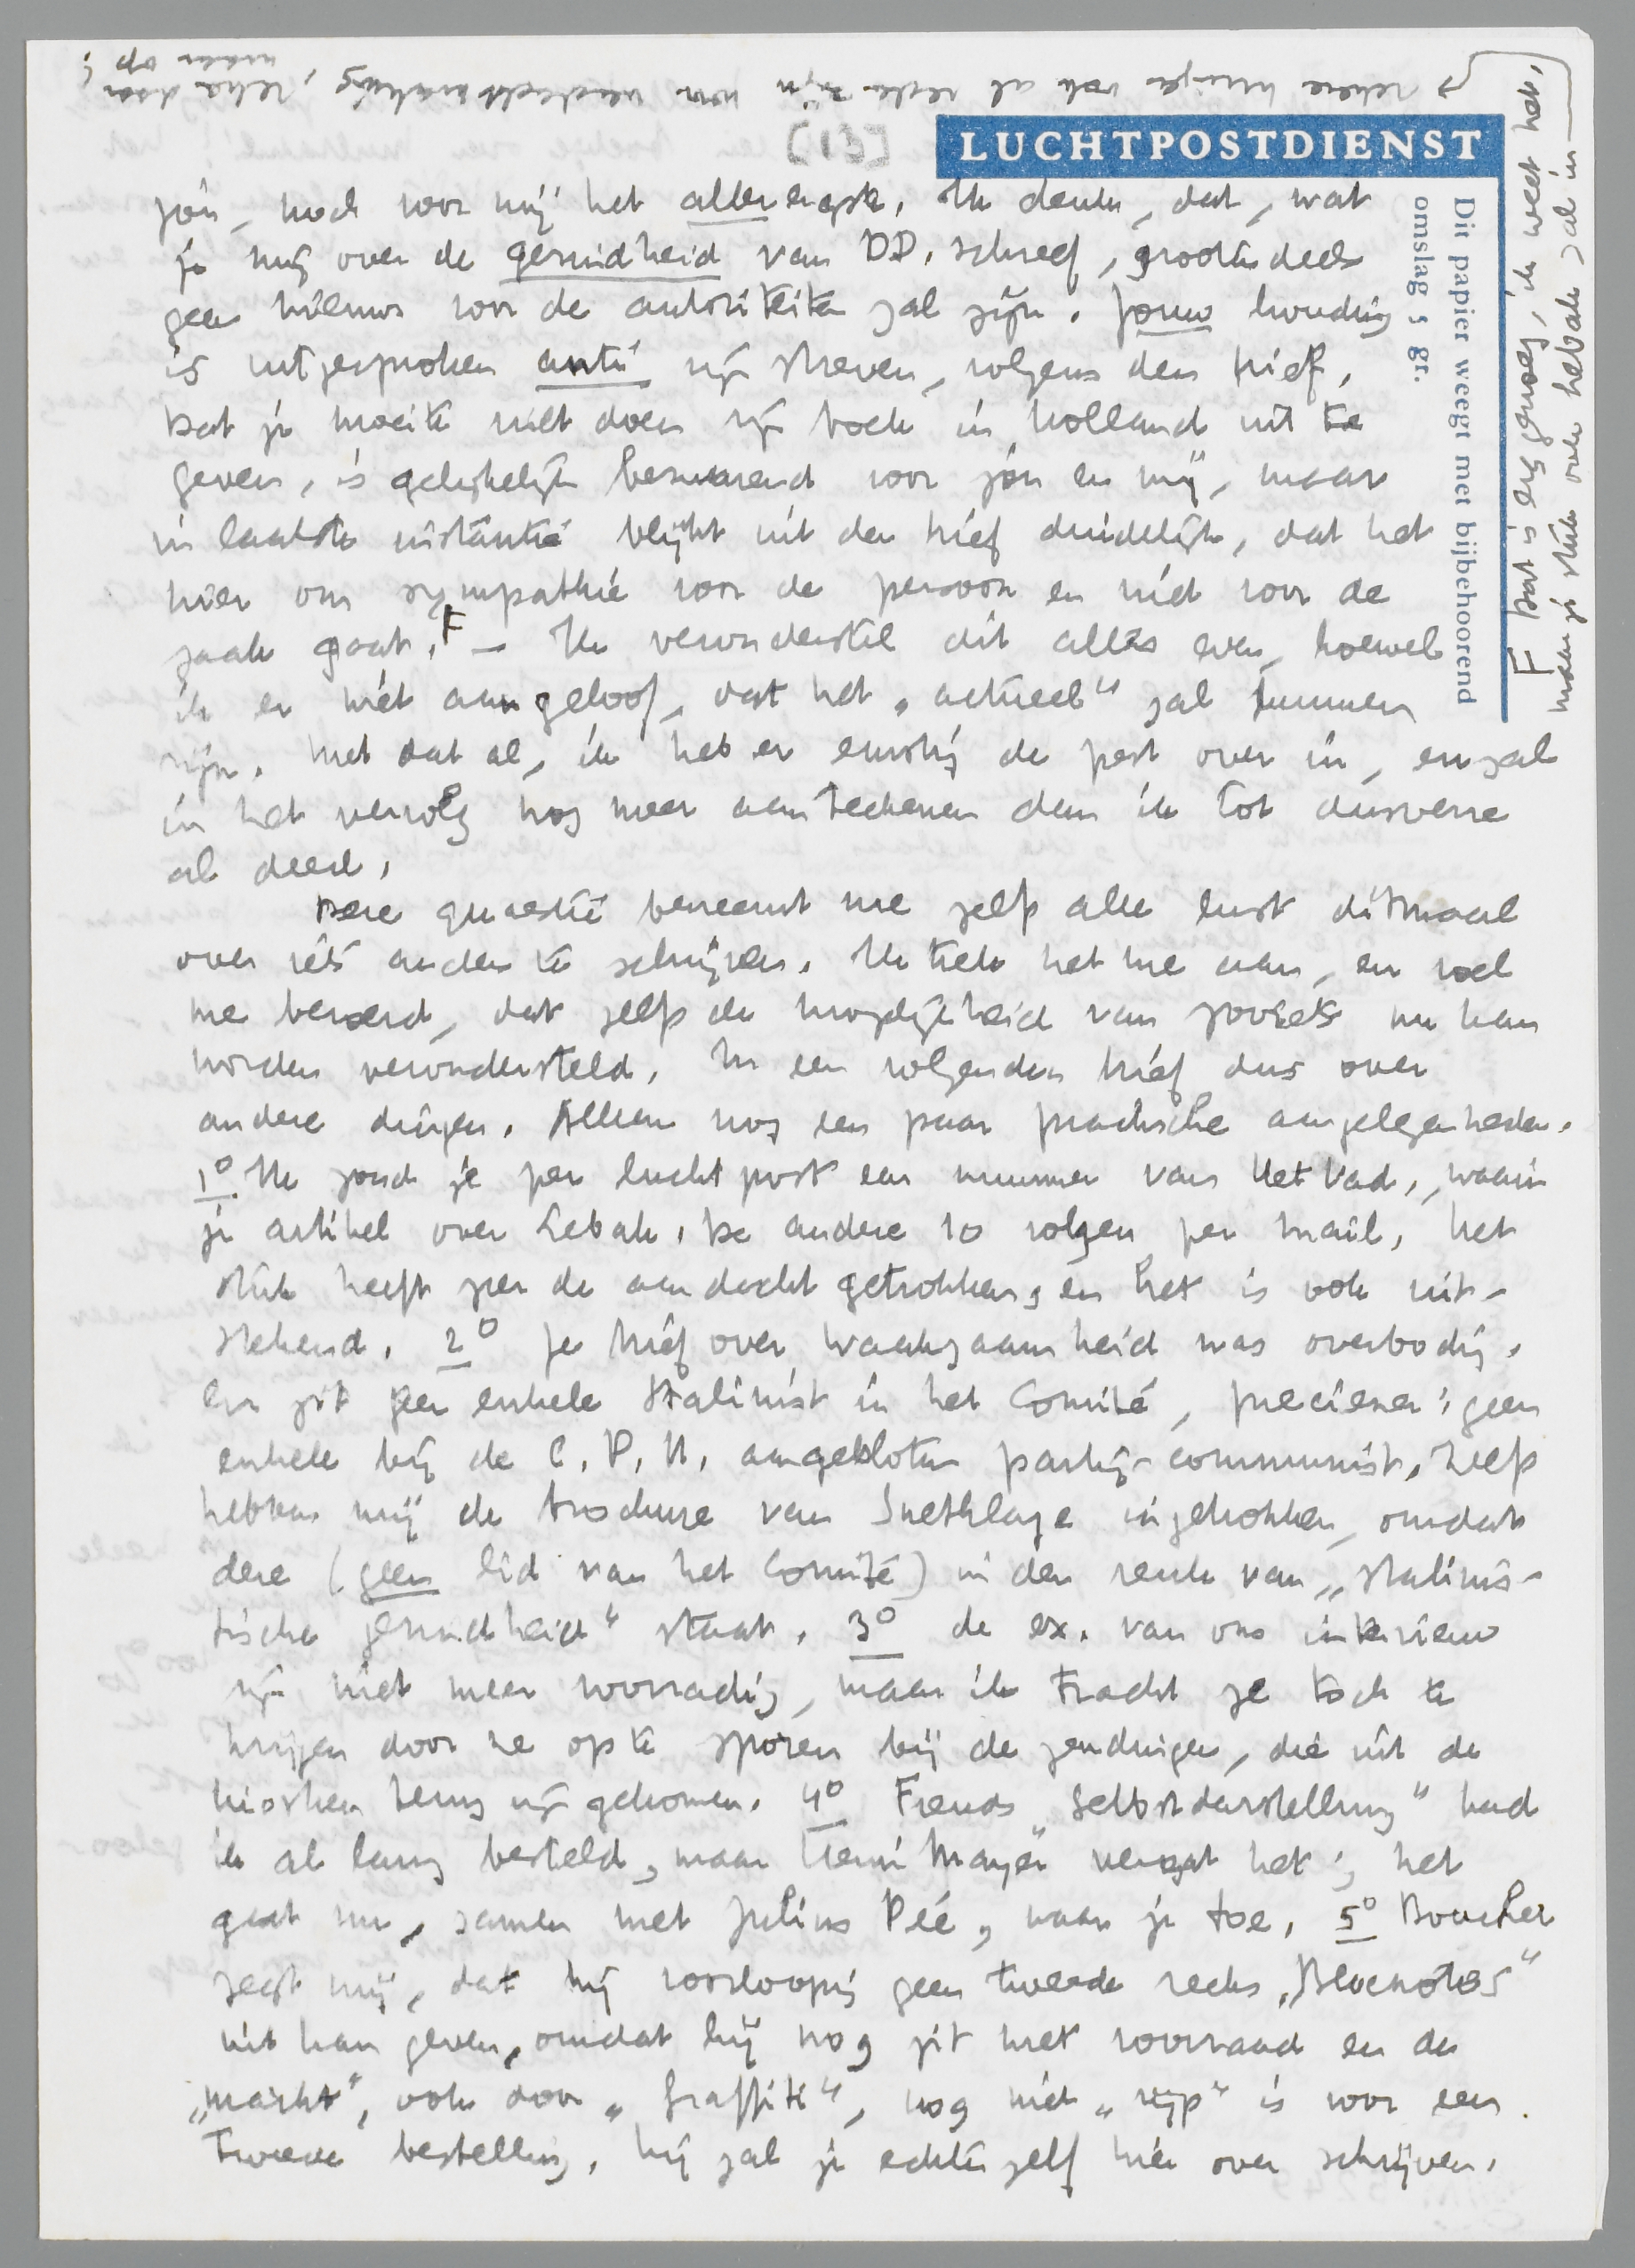 [13]
LUCHTPOSTDIENST
Dit papier weegt met bijbehoorend
omslag 5 gr.
jou, noch voor mij het allerergste. Ik denk, dat, wat
je mij over de gezindheid van DD. schreef, grootendeels
geen nieuws voor de autoriteiten zal zijn. Jouw houding
is uitgesproken anti zijn streven, volgens den brief.
Dat je moeite wilt doen zijn boek in Holland uit te
geven, is gelijkelijk bezwarend voor jou en mij, maar
in laatste instantie blijkt uit den brief duidelijk, dat het
hier om sympathie voor de persoon en niet voor de
zaak gaat. F – Ik veronderstel dit alles even, hoewel
ik er niet aan geloof, dat het „actueel” zal kunnen
zijn. Met dat al, ik heb er ernstig de pest over in, en zal
in het vervolg nog meer aanteekenen dan ik tot dusverre
al deed.
Deze quaestie beneemt me zelfs alle lust ditmaal
over iets anders te schrijven. Ik trek het me aan, en voel
me bezwaard, dat zelfs de mogelijkheid van zooiets nu kan
worden verondersteld. In een volgenden brief dus over
andere dingen. Alleen nog een paar practische aangelegenheden.
1° Ik zond je per luchtpost een nummer van Het Vad., waarin
je artikel over Lebak. De andere 10 volgen per mail. Het
stuk heeft zeer de aandacht getrokken, en het is ook uit-
stekend. 2° Je brief over Waakzaamheid was overbodig.
Er zit geen enkele Stalinist in het Comité, preciezer: geen
enkele bij de C.P.N. aangesloten partij-communist. Zelfs
hebben wij de brochure van Snethlage ingetrokken, omdat
deze (geen lid van het Comité) in den reuk van „stalinis-
tische gezindheid” staat. 3° de ex. van ons interview
zijn niet meer voorradig, maar ik tracht ze toch te
krijgen door ze op te sporen bij de zendingen, die uit de
kiosken terug zijn gekomen. 4° Freuds „Selbstdarstellung” had
ik al lang besteld, maar Lierni Mayer vergat het; het
gaat nu, samen met Julius Pée, naar je toe. 5° Boucher
zegt mij, dat hij voorloopig geen tweede reeks „Blocnotes”
uit kan geven, omdat hij nog zit met voorraad en de
„markt”, ook door „Graffiti”, nog niet „rijp” is voor een
tweede bestelling. Hij zal je echter zelf hier over schrijven.
F Dat is erg genoeg, ik weet het,
maar je stuk over Lebak zal in
zekere kringen ook al reden zijn voor verdachtmaking, reken daar
maar op!